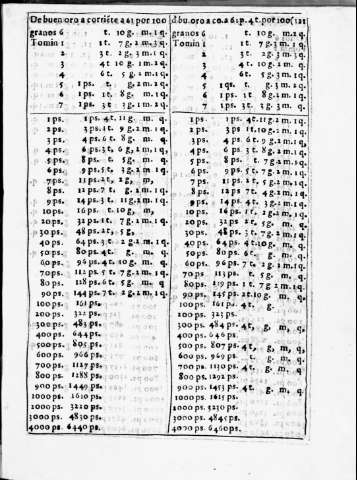 De buen oro a corriẽte a 61 por 100
granos 6 t. 10 g. m. 1 q.
Tomin 1 1 t. 7 g. 2 m. 3 q.
2 3 t. 2 g. 3 m. q.
3 4 t. 10 g. 1 m. 2 q.
4 6 t. 5 g. 1 m. 1 q.
5 1 ps. t. g. 2 m. 1 q.
6 1 ps. 1 t. 8 g. m. 1 q.
7 1 ps. 3 t. 3 g. 1 m. q.
1 ps. 1 ps. 4 t. 11 g. m. q.
2 ps. 3 ps. 1 t. 9 g. 1 m. q.
3 ps. 4 ps. 6 t. 8 g. m. q.
4 ps. 6 ps. 3 t. 6 g. 2 m, 1 q.
5 ps. 8 ps. t. 5 g. m. q.
6 ps. 9 ps. 5 t. 3 g. 2 m 1 q.
7 ps. 11 ps. 2 t, 2 g, m,
8 ps. 12 ps. 7 t. g. 2 m. 1 q.
9 ps. 14 ps. 3 t. 11 g. 2 m. 1 q.
10 ps. 16 ps. t. 10 g, m,
20 ps. 32 ps. 1 t. 7 g. 2 m. 1 q.
30 ps. 48 ps. 2 t, 5 g,
40 ps. 64 ps. 3 t. 2 g. 2 m. 1 q.
50 ps. 80 ps. 4 t. g. m. q.
60 ps. 96 ps. 4 t. 10 g. m. q.
70 ps. 112 ps. 5 t. 7 g. 2 m. 1 q.
80 ps. 128 ps. 6 t. 5 g. m. q.
90 ps. 144 ps. 7 t. 2 g. 2 m, 1 q.
100 ps. 161 ps.
200 ps. 322 ps.
300 ps. 483 ps.
400 ps. 644 ps.
500 ps. 805 ps.
600 ps. 966 ps.
700 ps. 1127 ps.
800 ps. 1288 ps.
900 ps. 1449 ps.
1000 ps. 1610 ps.
2000 ps. 3220 ps.
3000 ps. 4830 ps.
4000 ps. 6440 ps.
d bu. oro a co. a 61 p. 4 t. por 100
granos 6 t. 10 g. m. 2 q.
Tomin 1 1 t. 7 g. 3 m. q.
2 3 t. 2 g. 3 m. 1 q.
3 4 t. 10 g. 2 m. q.
4 6 t. 5 g. 1 m. q.
5 1 ps. t. g. 3 m. q.
6 1 ps. 1 t 8 g. 1 m. q.
7 1 ps. 3 t 3 g. 1 m. q.
1 ps. 1 ps. 4 t. 11 g. 2 m. 1 q.
2 ps. 3 ps 1 t. 10 g. 1 m. q.
3 ps. 4 ps 6 t. 9 g. 2 m. q.
4 ps. 6 ps 3 t. 8 g. 2 m. 1 q.
5 ps. 8 ps. t. 7 g. 2 m. q.
6 ps. 9 ps 5 t. 7 g. 1 m. q.
7 ps. 11 ps 2 t. 5 g. 2 m. q.
8 ps. 12 ps 7 t. 4 g. 2 m. 1 q.
9 ps. 14 ps. 4 t. 3 g. 2 m. 1 q.
10 ps. 16 ps. 1 t. 2 g. 2 m. 1 q.
20 ps. 32 ps 2 t. 5 g. m. q.
30 ps. 48 ps. 3 t. 7 g. 2 m. 1 q.
40 ps. 64 ps. 4 t. 10 g. m. q.
50 ps. 80 ps. 6 t. g. m. q.
60 ps. 96 ps. 7 t. 2 g. 2 m. 1 q.
70 ps. 113 ps. t. 5 g. m. q.
80 ps. 129 ps. 1 t. 7 g. 2 m. 1 q.
90 ps. 145 ps. 2 t. 10 g. m. q.
100 ps. 161 ps. 4 t. g.
200 ps. 323 ps.
300 ps. 484 ps. 4 t, g, m, q,
400 ps. 646 ps.
500 ps. 807 ps. 4 t, g, m, q,
600 ps. 969 ps. t. g. m. q.
700 ps. 1130 ps. 4 t. g. m. q.
800 ps. 1292 ps.
900 ps. 1453 ps. 4 t. g. m. q.
1000 ps. 1615 ps.
2000 ps. 3230 ps.
3000 ps. 4845 ps.
4000 ps. 6460 ps.